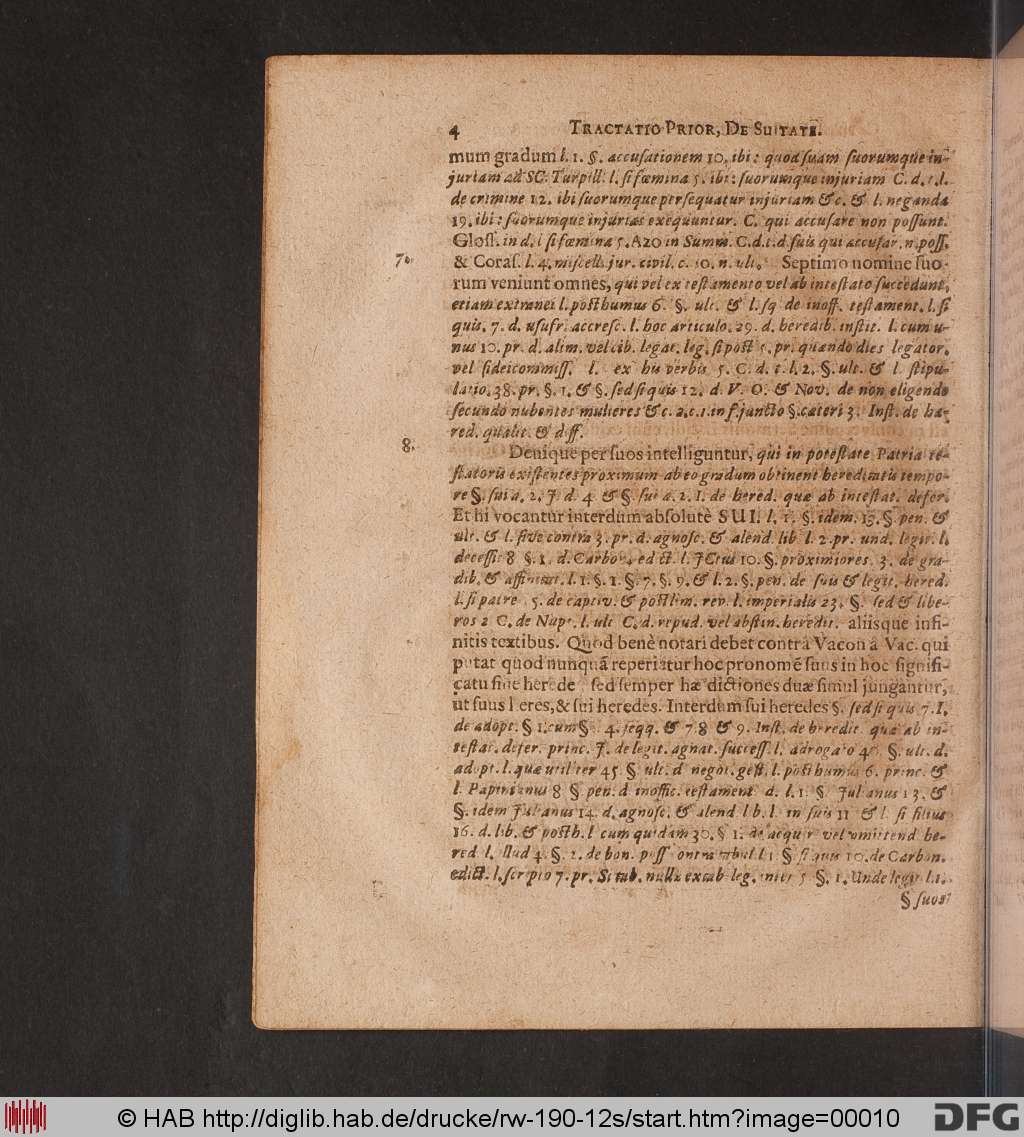 4 TRACTATIO PRIOR, DE SUITATE.
mum gradum l. 1. §. accuſationem 10. ibi: quod ſuam ſuorumque in-
juriam ad SC. Turpill. l. ſi fœmina 5. ibi: ſuorumque injuriam C. d. t. l.
de crimine 12. ibi ſuorumque perſequatur injuriam &c. & l. neganda
19. ibi: ſuorumque injurias exequuntur. C. qui accuſare non poſſunt.
Gloſſ. in d. l ſi fœmina 5. Azo in Summ. C. d. t. d. ſuis qui accuſar. n. poſſ.
7. & Coraſ. l. 4. miſcell. jur. civil. c. 10. n. ult. Septimo nomine ſuo-
rum veniunt omnes, qui vel ex teſtamento vel ab inteſtato ſuccedunt,
etiam extranei l. poſthumus 6. §. ult. & l. ſq de inoff. teſtament. l. ſi
quis. 7. d. uſufr. accreſc. l. hoc articulo. 29. d. heredib. inſtit. l. cum u-
nus 10. pr. d. alim. vel cib. legat. leg. ſi poſt 5. pr. quando dies legator.
vel fideicommiſſ. l. ex his verbis 5. C. d. t. l. 2. §. ult. & l ſtipu-
latio. 38. pr. §. 1. & §. ſed ſi quis 12. d. V. O. & Nov. de non eligendo
ſecundo nubentes mulieres &c. 2. c. 1. in f. juncto §. cæteri 3. Inſt. de hæ-
red. qualit. & diff.
8. Denique per ſuos intelliguntur, qui in poteſtate Patria te-
ſtatoris exiſtentes proximum ab eo gradum obtinent hereditatis tempo-
re §. ſui a. 2. J. d. 4 & §. ſui a. 2. I. de hered. quæ ab inteſtat. defer.
Et hi vocantur interdum abſolutè SUI. l. 1. §. idem. 13. §. pen. &
ult. & l. ſive contra 3. pr. d. agnoſc. & alend. lib l. 2. pr. und. legit. l.
deceſſit 8 §. 1. d. Carbon. edict. l. JCtus 10. §. proximiores. 3. de gra-
dib. & affinitat. l. 1. §. 1. §. 7. §. 9. & l. 2. §. pen. de ſuis & legit. hered.
l. ſi patre 5. de captiv. & poſtlim. rev. l. imperialis 23. §. ſed & libe-
ros 2 C. de Nupt. l. ult C. d. repud. vel abſtin. heredit. aliisque infi-
nitis textibus. Quod benè notari debet contra Vacon à Vac. qui
putat quod nunquā reperiatur hoc pronomē ſuus in hoc ſignifi-
catu ſine herede, ſed ſemper hæ dictiones duæ ſimul jungantur,
ut ſuus heres, & ſui heredes. Interdum ſui heredes §. ſed ſi quis 7. I.
de adopt. § 1. cum §. 4. ſeqq. & 7 8 & 9. Inſt. de heredit. quæ ab in-
teſtat. defer. princ. J. de legit. agnat. ſucceſſ. l. adrogato 40. §. ult. d.
adopt. l. quæ utiliter 45. § ult. d negot. geſt. l. poſthumus 6. princ. &
l. Papinianus 8 § pen. d inoffic. teſtament d. l. 1. §. Julianus 13. &
§. idem Julianus 14. d. agnoſc. & alend lib. l. in ſuis 11 & l. ſi filius
16. d. lib. & poſth. l cum quidam 30. § 1. de acquir vel omittend he-
red l. illud 4. §. 2. de bon. poſſ contra tabul l 1 § ſi quis 10. de Carbon.
edict. l. ſcripto 7. pr. Si tab. nullæ extab leg. inter 5 §. 1. Unde legit l. 1.
§ ſuos
© HAB http://diglib.hab.de/drucke/rw-190-12s/start.htm?image=00010 DFG